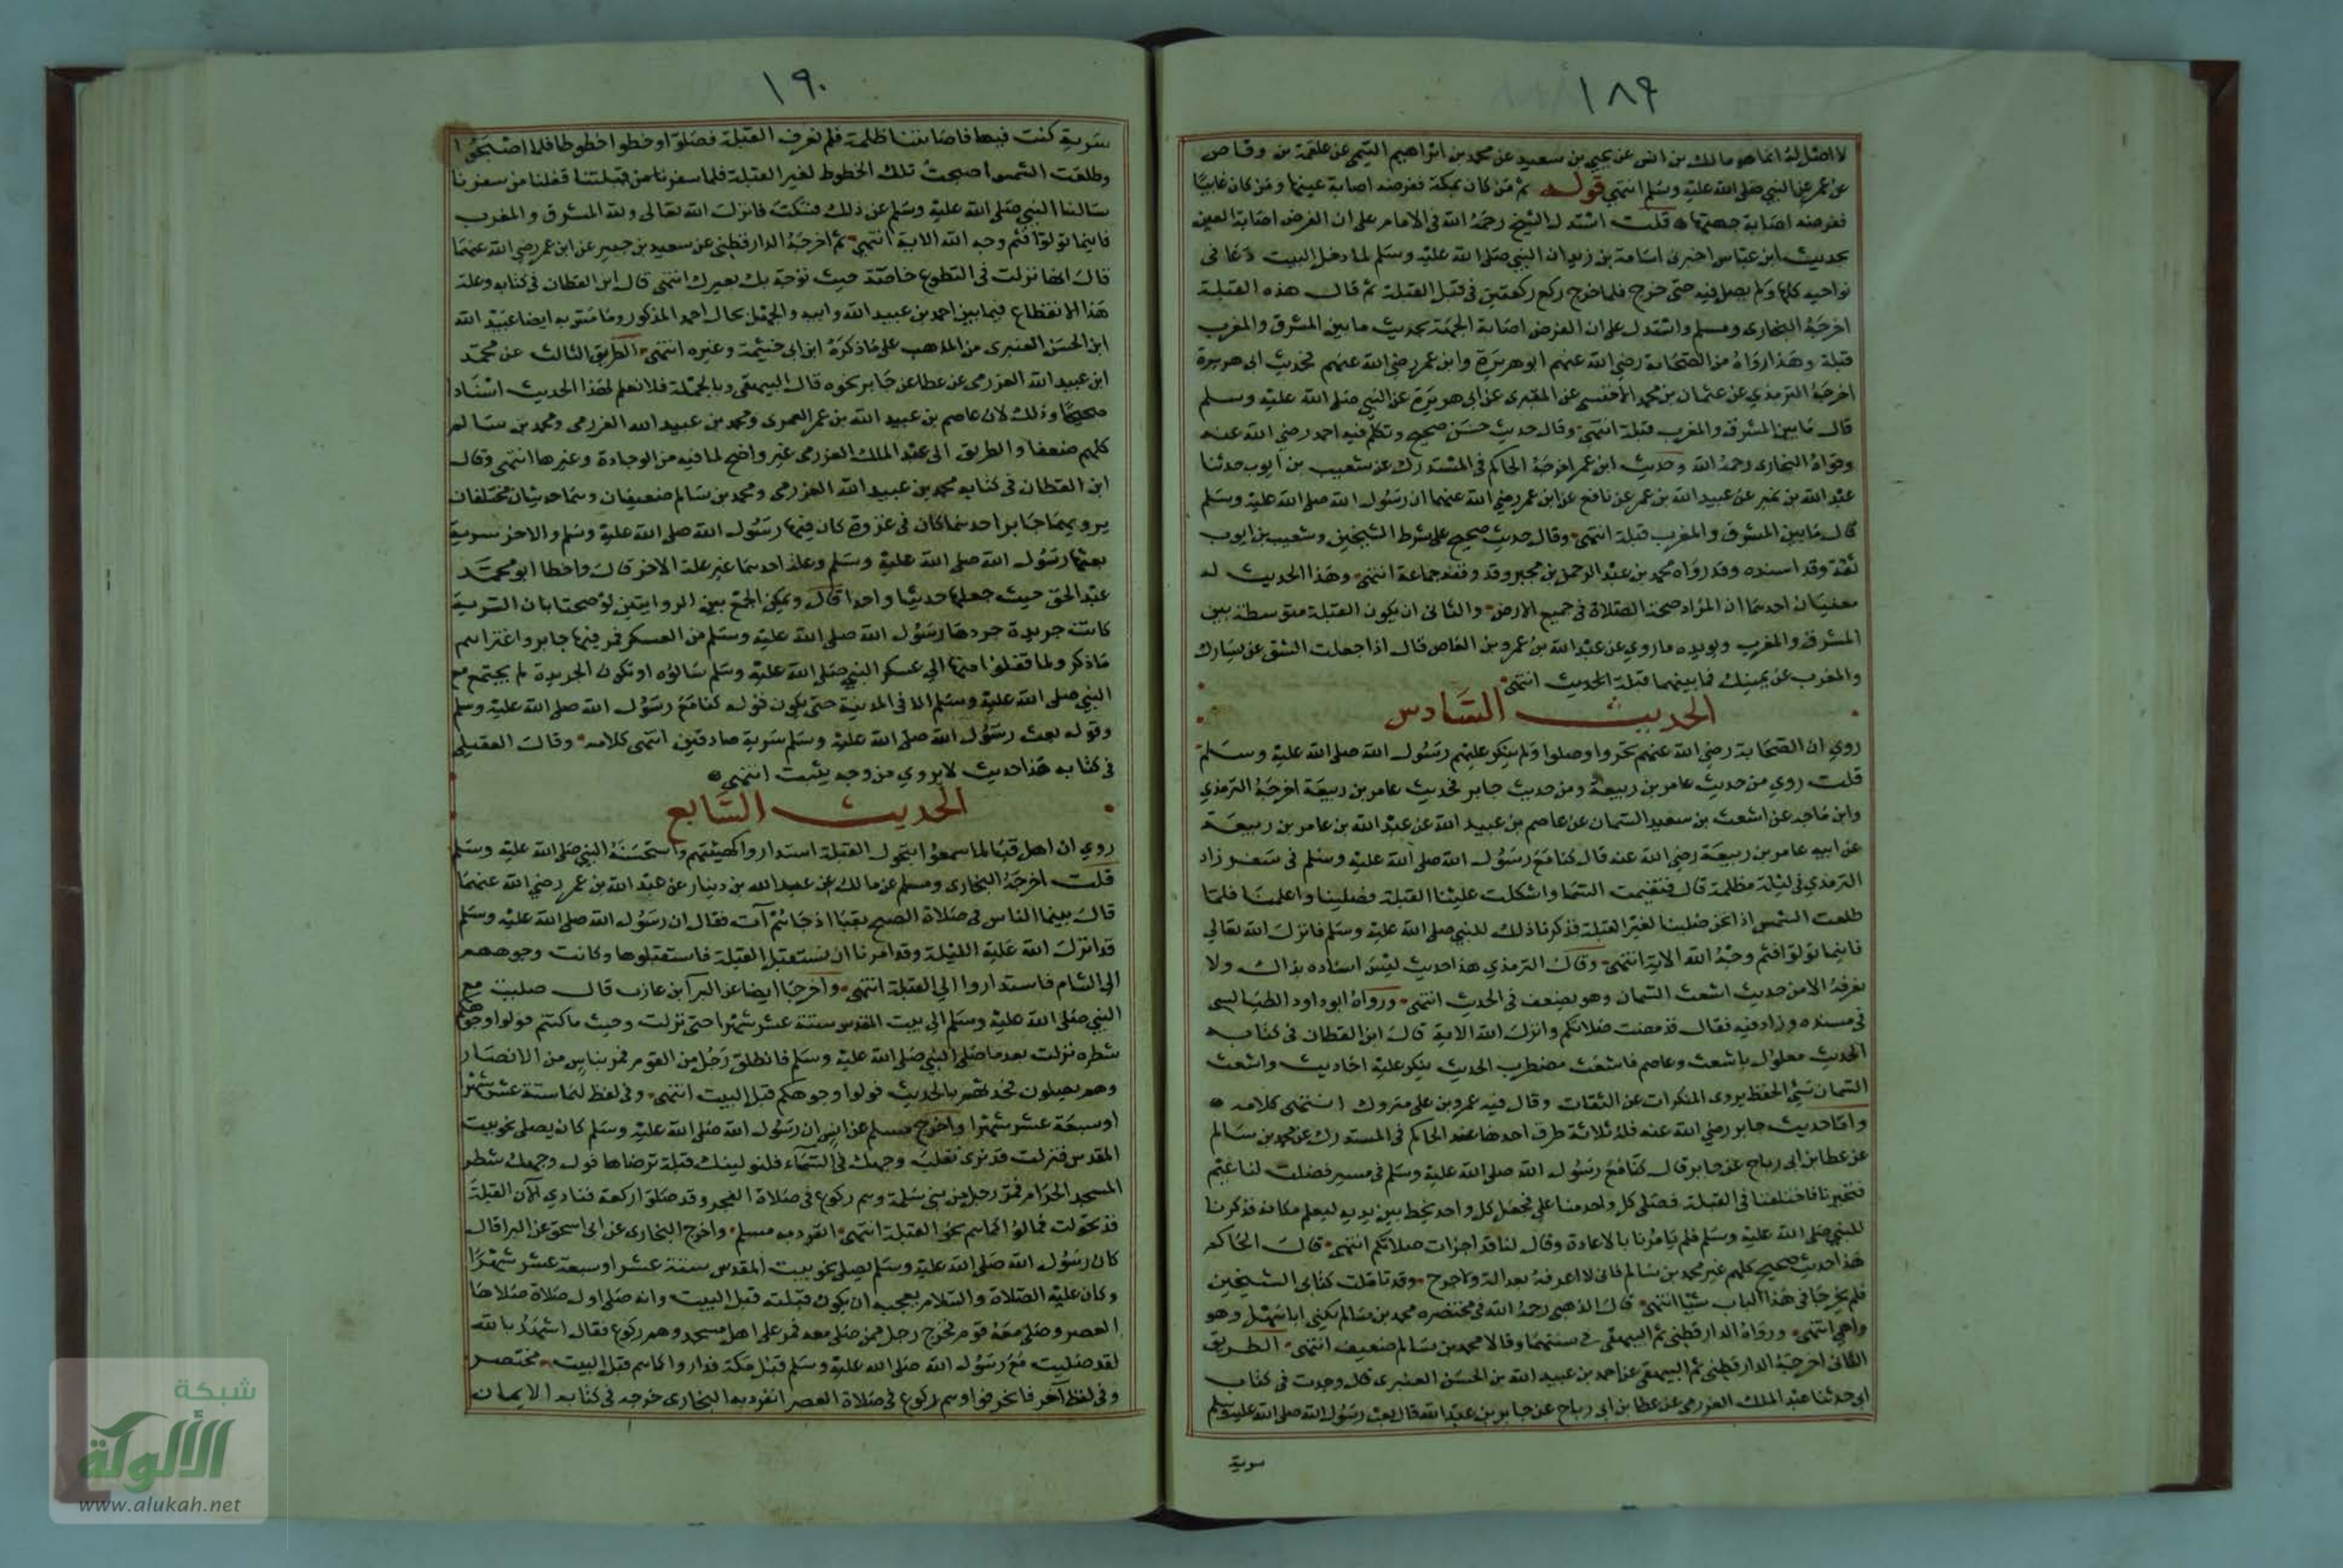 ١٨٩
لا اصل له انما هو مالك بن انس عن يحيى بن سعيد عن محمد بن ابراهيم التيمي عن علقمة بن وقاص
عن عمر عن النبي صلى الله عليه وسلم انتهى قوله ثم من كان بمكة ففرضه اصابة عينها ومن كان غايبا
ففرضه اصابة جهتها قلت استدل الشيخ رحمه الله في الامام على ان الفرض اصابة العين
بحديث ابن عباس اخبرنى اسامة بن زيد ان النبي صلى الله عليه وسلم لما دخل البيت دعا فى
نواحيه كلها ولم يصل فيه حتى خرج فلما خرج ركع ركعتين في قبل القبلة ثم قال هذه القبلة
اخرجه البخارى ومسلم واستدل على ان الفرض اصابة الجهة بحديث ما بين المشرق والمغرب
قبلة وهذا رواه من الصحابة رضي الله عنهم ابو هريرة وابن عمر رضي الله عنهم فحديث ابى هريرة
اخرجه الترمذي عن عثمان بن محمد الاخنسى عن المقبرى عن ابى هريرة عن النبي صلى الله عليه وسلم
قال ما بين المشرق والمغرب قبلة انتهى وقال حديث حسن صحيح وتكلم فيه احمد رضي الله عنه
وقواه البخارى رحمه الله وحديث ابن عمر اخرجه الحاكم في المستدرك عن شعيب بن ايوب حدثنا
عبد الله بن نمير عن عبيد الله بن عمر عن نافع عن ابن عمر رضي الله عنهما ان رسول الله صلى الله عليه وسلم
قال ما بين المشرق والمغرب قبلة انتهى وقال حديث صحيح على شرط الشيخين وشعيب بن ايوب
ثقة وقد اسنده وقد رواه محمد بن عبد الرحمن بن مجبر وقد وقفه جماعة انتهى وهذا الحديث له
معنيان احدهما ان المراد صحة الصلاة في جميع الارض والثانى ان يكون القبلة متوسطة بين
المشرق والمغرب ويويده ما روي عن عبد الله بن عمرو بن العاص قال اذا جعلت الشق عن يسارك
والمغرب عن يمينك فما بينهما قبلة الحديث انتهى
الحديث السادس
روي ان الصحابة رضي الله عنهم تحروا وصلوا ولم ينكر عليهم رسول الله صلى الله عليه وسلم
قلت روي من حديث عامر بن ربيعة ومن حديث جابر فحديث عامر بن ربيعة اخرجه الترمذي
وابن ماجه عن اشعث بن سعيد السمان عن عاصم بن عبيد الله عن عبد الله بن عامر بن ربيعة
عن ابيه عامر بن ربيعة رضي الله عنه قال كنا مع رسول الله صلى الله عليه وسلم في سفر زاد
الترمذي في ليلة مظلمة قال فتغيمت السما واشكلت علينا القبلة فصلينا واعلمنا فلما
طلعت الشمس اذا نحن صلينا لغير القبلة فذكرنا ذلك للنبي صلى الله عليه وسلم فانزل الله تعالى
فاينما تولوا فثم وجه الله الاية انتهى وقال الترمذي هذا حديث ليس اسناده بذاك ولا
نعرفه الا من حديث اشعث السمان وهو يضعف في الحديث انتهى ورواه ابو داود الطيالسى
في مسنده وزاد فيه فقال قد مضت صلاتكم وانزل الله الاية قال ابن القطان في كتابه
الحديث معلول باشعث وعاصم فاشعث مضطرب الحديث ينكر عليه احاديث واشعث
السمان سيئ الحفظ يروى المنكرات عن الثقات وقال فيه عمرو بن على متروك انتهى كلامه
واما حديث جابر رضي الله عنه فله ثلاثة طرق احدها عند الحاكم في المستدرك عن محمد بن سالم
عن عطا بن ابى رباح عن جابر قال كنا مع رسول الله صلى الله عليه وسلم في مسير فضلت لنا غيم
فتحيرنا فاختلفنا في القبلة فصلى كل واحد منا على فجعل كل واحد يخط بين يديه ليعلم مكانه فذكرنا
للنبي صلى الله عليه وسلم فلم يامرنا بالاعادة وقال لنا قد اجزات صلاتكم انتهى قال الحاكم
هذا حديث صحيح كلهم غير محمد بن سالم فانى لا اعرفه بعدالة ولا جرح وقد تاملت كتابى الشيخين
فلم يخرجا في هذا الباب شيا انتهى قال الذهبي رحمه الله في مختصره محمد بن سالم يكنى ابا سهل وهو
واهي انتهى ورواه الدارقطني ثم البيهقي في سننهما وقالا محمد بن سالم ضعيف انتهى الطريق
الثانى اخرجه الدارقطني ثم البيهقى عن احمد بن عبيد الله بن الحسن العنبرى قال وجدت في كتاب
ابى حدثنا عبد الملك العزرمى عن عطا بن ابى رباح عن جابر بن عبد الله قال بعث رسول الله صلى الله عليه وسلم
سرية
١٩٠
سرية كنت فيها فاصابتنا ظلمة فلم نعرف القبلة فصلوا وخطوا خطوطا فلما اصبحوا
وطلعت الشمس اصبحت تلك الخطوط لغير القبلة فلما سفرنا من قبلتنا قفلنا من سفرنا
سالنا النبي صلى الله عليه وسلم عن ذلك فسكت فانزل الله تعالى ولله المشرق والمغرب
فاينما تولوا فثم وجه الله الاية انتهى ثم اخرجه الدارقطني عن سعيد بن جبير عن ابن عمر رضي الله عنهما
قال انما نزلت في التطوع خاصة حيث توجه بك بعيرك انتهى قال ابن القطان في كتابه وعلة
هذا الانقطاع فيما بين احمد بن عبيد الله وابيه والجهل بحال احمد المذكور وما مس به ايضا عبيد الله
ابن الحسن العنبرى من المذهب على ما ذكره ابن ابى خيثمة وغيره انتهى الطريق الثالث عن محمد
ابن عبيد الله العزرمى عن عطا عن جابر نحوه قال البيهقى وبالجملة فلا نعلم لهذا الحديث اسنادا
صحيحا وذلك لان عاصم بن عبيد الله بن عمر العمرى ومحمد بن عبيد الله العزرمى ومحمد بن سالم
كلهم ضعفا والطريق الى عبد الملك العزرمى غير واضح لما فيه من الوجادة وغيرها انتهى وقال
ابن القطان في كتابه محمد بن عبيد الله العزرمى ومحمد بن سالم ضعيفان وهما حديثان مختلفان
يرويهما جابر احدهما كان في غزوة كان فيها رسول الله صلى الله عليه وسلم والاخر سرية
بعثها رسول الله صلى الله عليه وسلم وعلة احدهما غير علة الاخر قال واخطا ابو محمد
عبد الحق حيث جعلهما حديثا واحدا قال ويمكن الجمع بين الروايتين لو صحتا بان السرية
كانت جريدة جردها رسول الله صلى الله عليه وسلم من العسكر فمر فيها جابر واعتراهم
ما ذكر ولما قفلوا منها الي عسكر النبي صلى الله عليه وسلم سالوه او تكون الجريدة لم يجتمع مع
النبي صلى الله عليه وسلم الا في المدينة حتى يكون قوله كنا مع رسول الله صلى الله عليه وسلم
وقوله بعث رسول الله صلى الله عليه وسلم سرية صادقين انتهى كلامه وقال العقيلى
في كتابه هذا حديث لا يروي من وجه يثبت انتهى
الحديث السابع
روي ان اهل قبا لما سمعوا بتحول القبلة استداروا كهيئتهم واستحسنه النبي صلى الله عليه وسلم
قلت اخرجه البخارى ومسلم عن مالك عن عبد الله بن دينار عن عبد الله بن عمر رضي الله عنهما
قال بينما الناس في صلاة الصبح بقبا اذ جائهم آت فقال ان رسول الله صلى الله عليه وسلم
قد انزل الله عليه الليلة وقد امرنا ان نستقبل القبلة فاستقبلوها وكانت وجوههم
الى الشام فاستداروا الي القبلة انتهى واخرجا ايضا عن البرآ بن عازب قال صليت مع
النبي صلى الله عليه وسلم الي بيت المقدس ستة عشر شهرا حتى نزلت وحيث ما كنتم فولوا وجوهكم
شطره نزلت بعد ما صلى النبي صلى الله عليه وسلم فانطلق رجل من القوم فمر بناس من الانصار
وهم يصلون فحدثهم بالحديث فولوا وجوهكم قبل البيت انتهى وفى لفظ لهما ستة عشر شهرا
او سبعة عشر شهرا واخرج مسلم عن انس ان رسول الله صلى الله عليه وسلم كان يصلى نحو بيت
المقدس فنزلت قد نرى تقلب وجهك في السماء فلنولينك قبلة ترضاها فول وجهك شطر
المسجد الحرام فمر رجل من بني سلمة وهم ركوع في صلاة الفجر وقد صلوا ركعة فنادي الا ان القبلة
قد تحولت فمالوا كماهم نحو القبلة انتهى انفرد به مسلم واخرج البخارى عن ابى اسحق عن البرا قال
كان رسول الله صلى الله عليه وسلم يصلى نحو بيت المقدس ستة عشر او سبعة عشر شهرا
وكان عليه الصلاة والسلام يعجبه ان يكون قبلته قبل البيت وانه صلى اول صلاة صلاها
العصر وصلى معه قوم فخرج رجل ممن صلى معه فمر على اهل مسجد وهم ركوع فقال اشهد بالله
لقد صليت مع رسول الله صلى الله عليه وسلم قبل مكة فداروا كماهم قبل البيت مختصر
وفى لفظ آخر فانحرفوا وهم ركوع في صلاة العصر انفرد به البخارى خرجه في كتابه الايمان
شبكة
الألوكة
www.alukah.net